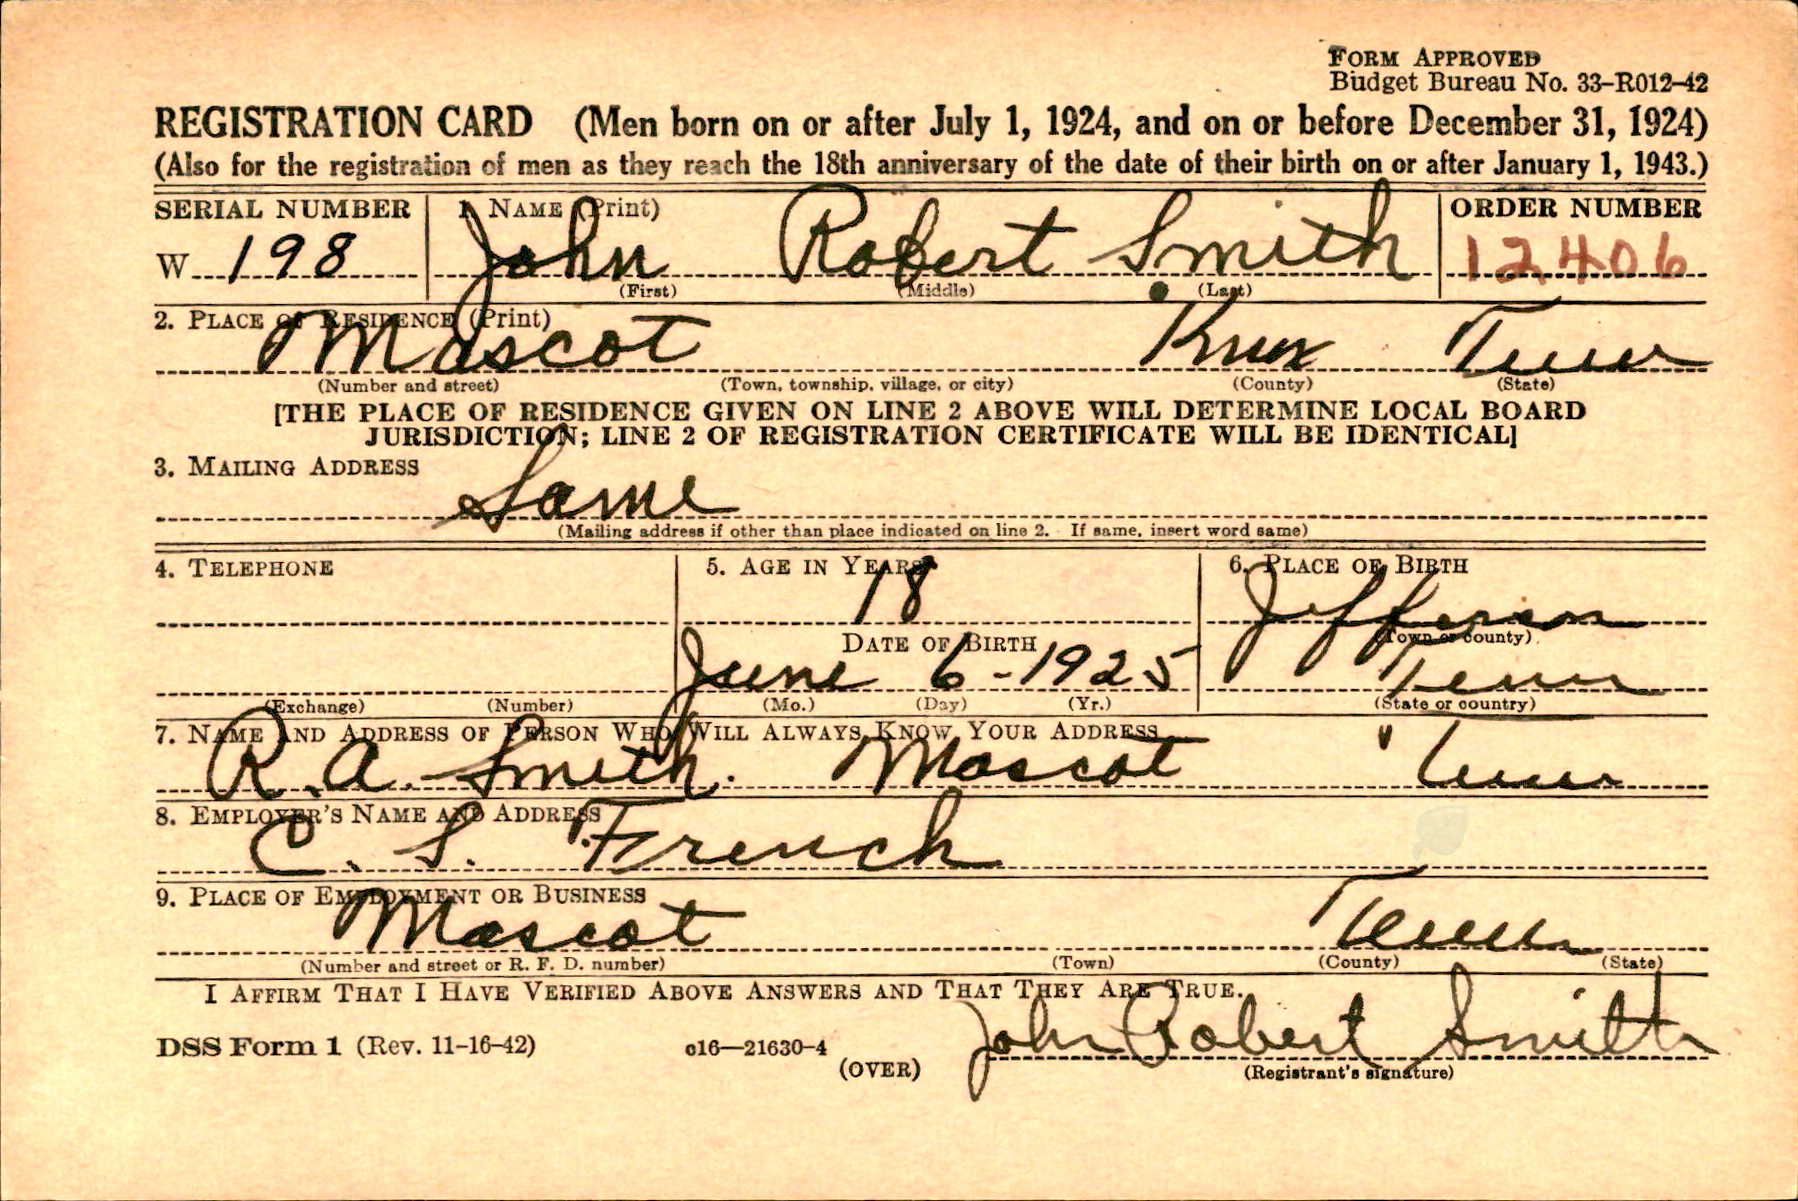 FORM APPROVED
Budget Bureau No. 33-R012-42
REGISTRATION CARD (Men born on or after July 1, 1924, and on or before December 31, 1924)
(Also for the registration of men as they reach the 18th anniversary of the date of their birth on or after January 1, 1943.)
SERIAL NUMBER 1. NAME (Print) ORDER NUMBER
W 198 John Robert Smith 12406
(First) (Middle) (Last)
2. PLACE OF RESIDENCE (Print)
Mascot Knox Tenn
(Number and street) (Town, township, village, or city) (County) (State)
[THE PLACE OF RESIDENCE GIVEN ON LINE 2 ABOVE WILL DETERMINE LOCAL BOARD
JURISDICTION; LINE 2 OF REGISTRATION CERTIFICATE WILL BE IDENTICAL]
3. MAILING ADDRESS
Same
(Mailing address if other than place indicated on line 2. If same, insert word same)
4. TELEPHONE 5. AGE IN YEARS 6. PLACE OF BIRTH
18 Jefferson
DATE OF BIRTH (Town or county)
June 6-1925 Tenn
(Exchange) (Number) (Mo.) (Day) (Yr.) (State or country)
7. NAME AND ADDRESS OF PERSON WHO WILL ALWAYS KNOW YOUR ADDRESS
R. A. Smith. Mascot Tenn
8. EMPLOYER'S NAME AND ADDRESS
C. S. French
9. PLACE OF EMPLOYMENT OR BUSINESS
Mascot Tenn
(Number and street or R. F. D. number) (Town) (County) (State)
I AFFIRM THAT I HAVE VERIFIED ABOVE ANSWERS AND THAT THEY ARE TRUE.
John Robert Smith
DSS Form 1 (Rev. 11-16-42) c16—21630-4 (OVER) (Registrant's signature)